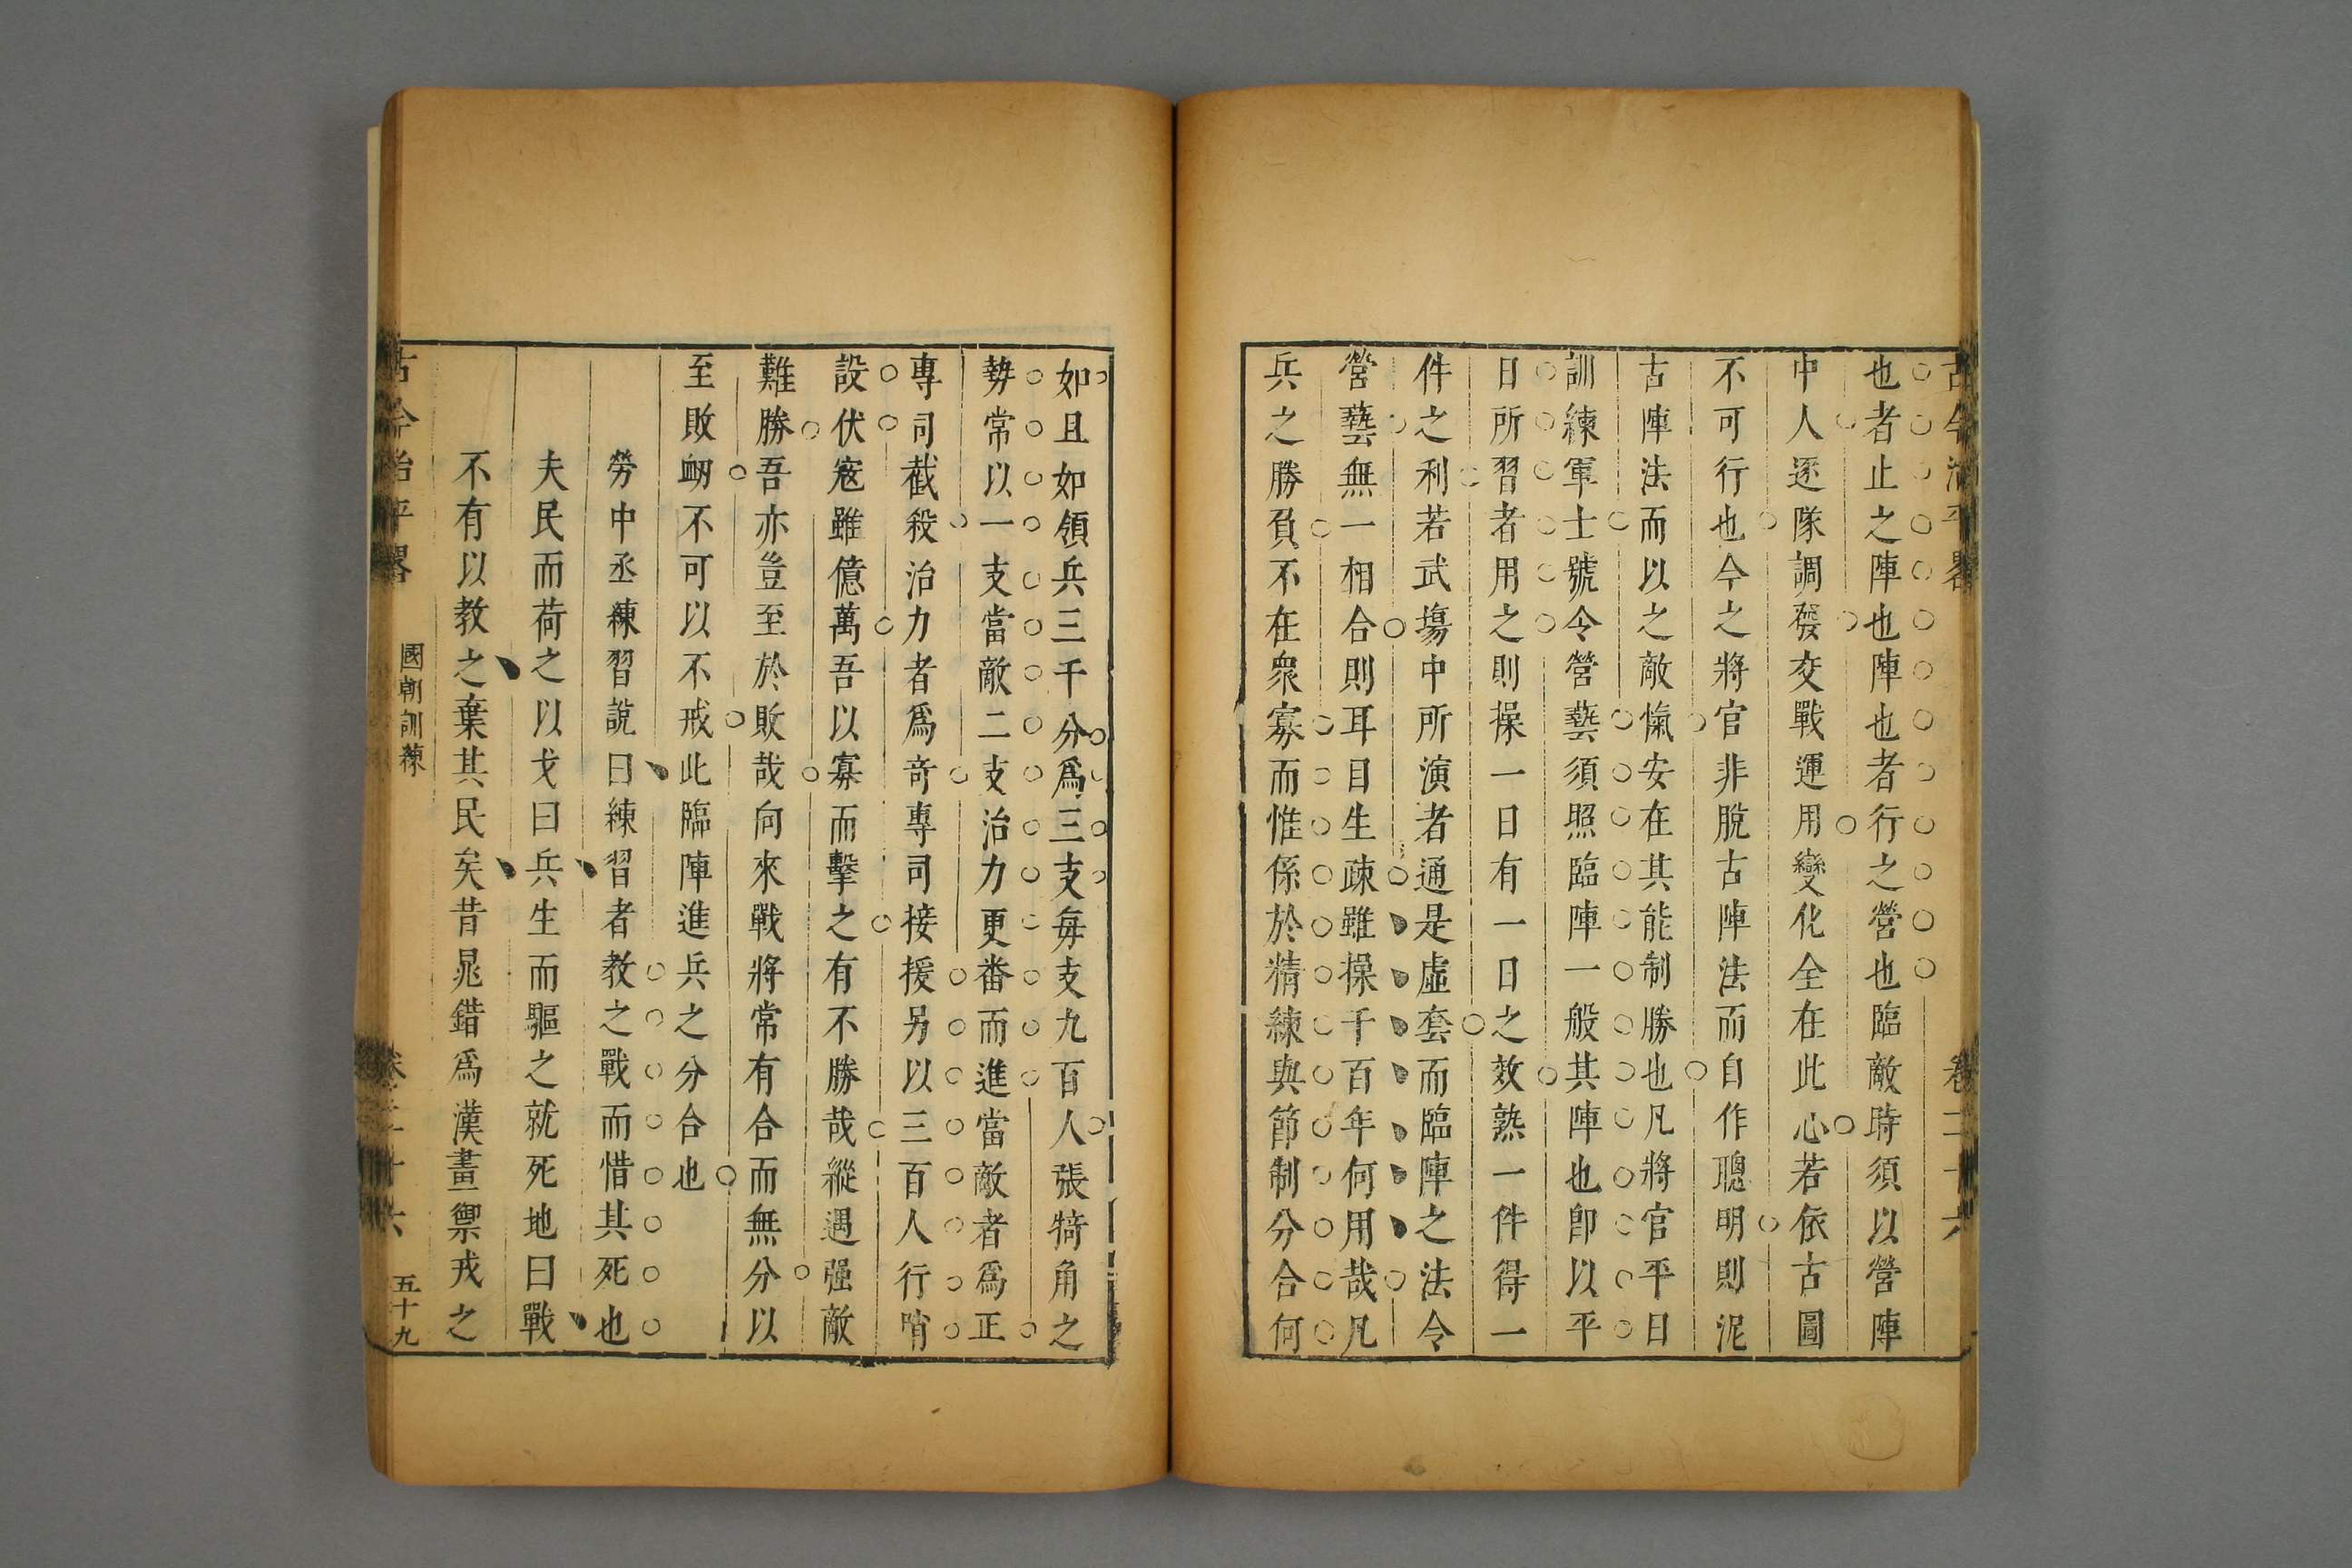 古今治平畧 卷二十六
也者止之陣也陣也者行之營也臨敵時須以營陣
中人逐隊調發交戰運用變化全在此心若依古圖
不可行也今之將官非脫古陣法而自作聰明則泥
古陣法而以之敵愾安在其能制勝也凡將官平日
訓練軍士號令營藝須照臨陣一般其陣也卽以平
日所習者用之則操一日有一日之效熟一件得一
件之利若武塲中所演者通是虛套而臨陣之法令
營藝無一相合則耳目生疎雖操千百年何用哉凡
兵之勝負不在衆寡而惟係於精練與節制分合何
如且如領兵三千分爲三支每支九百人張犄角之
勢常以一支當敵二支治力更番而進當敵者爲正
專司截殺治力者爲竒專司接援另以三百人行哨
設伏寇雖億萬吾以寡而擊之有不勝哉縱遇强敵
難勝吾亦豈至於敗哉向來戰將常有合而無分以
至敗衂不可以不戒此臨陣進兵之分合也
勞中丞練習說曰練習者教之戰而惜其死也
夫民而荷之以戈曰兵生而驅之就死地曰戰
不有以教之棄其民矣昔晁錯爲漢畫禦戎之
古今治平畧 國朝訓練 卷二十六 五十九